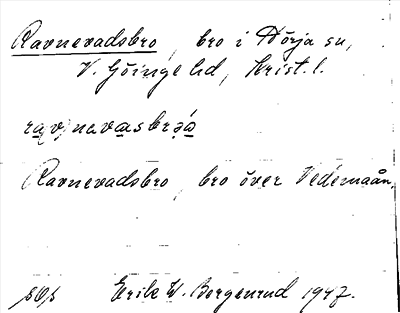 Ravnevadsbro, bro i Nörja sn,
V. Göinge hd, Krist. l.
ra(v)nevasbrǫ́a
Ravnevadsbro, bro över Vedemaån,
Erik W. Bergenrud 1947.